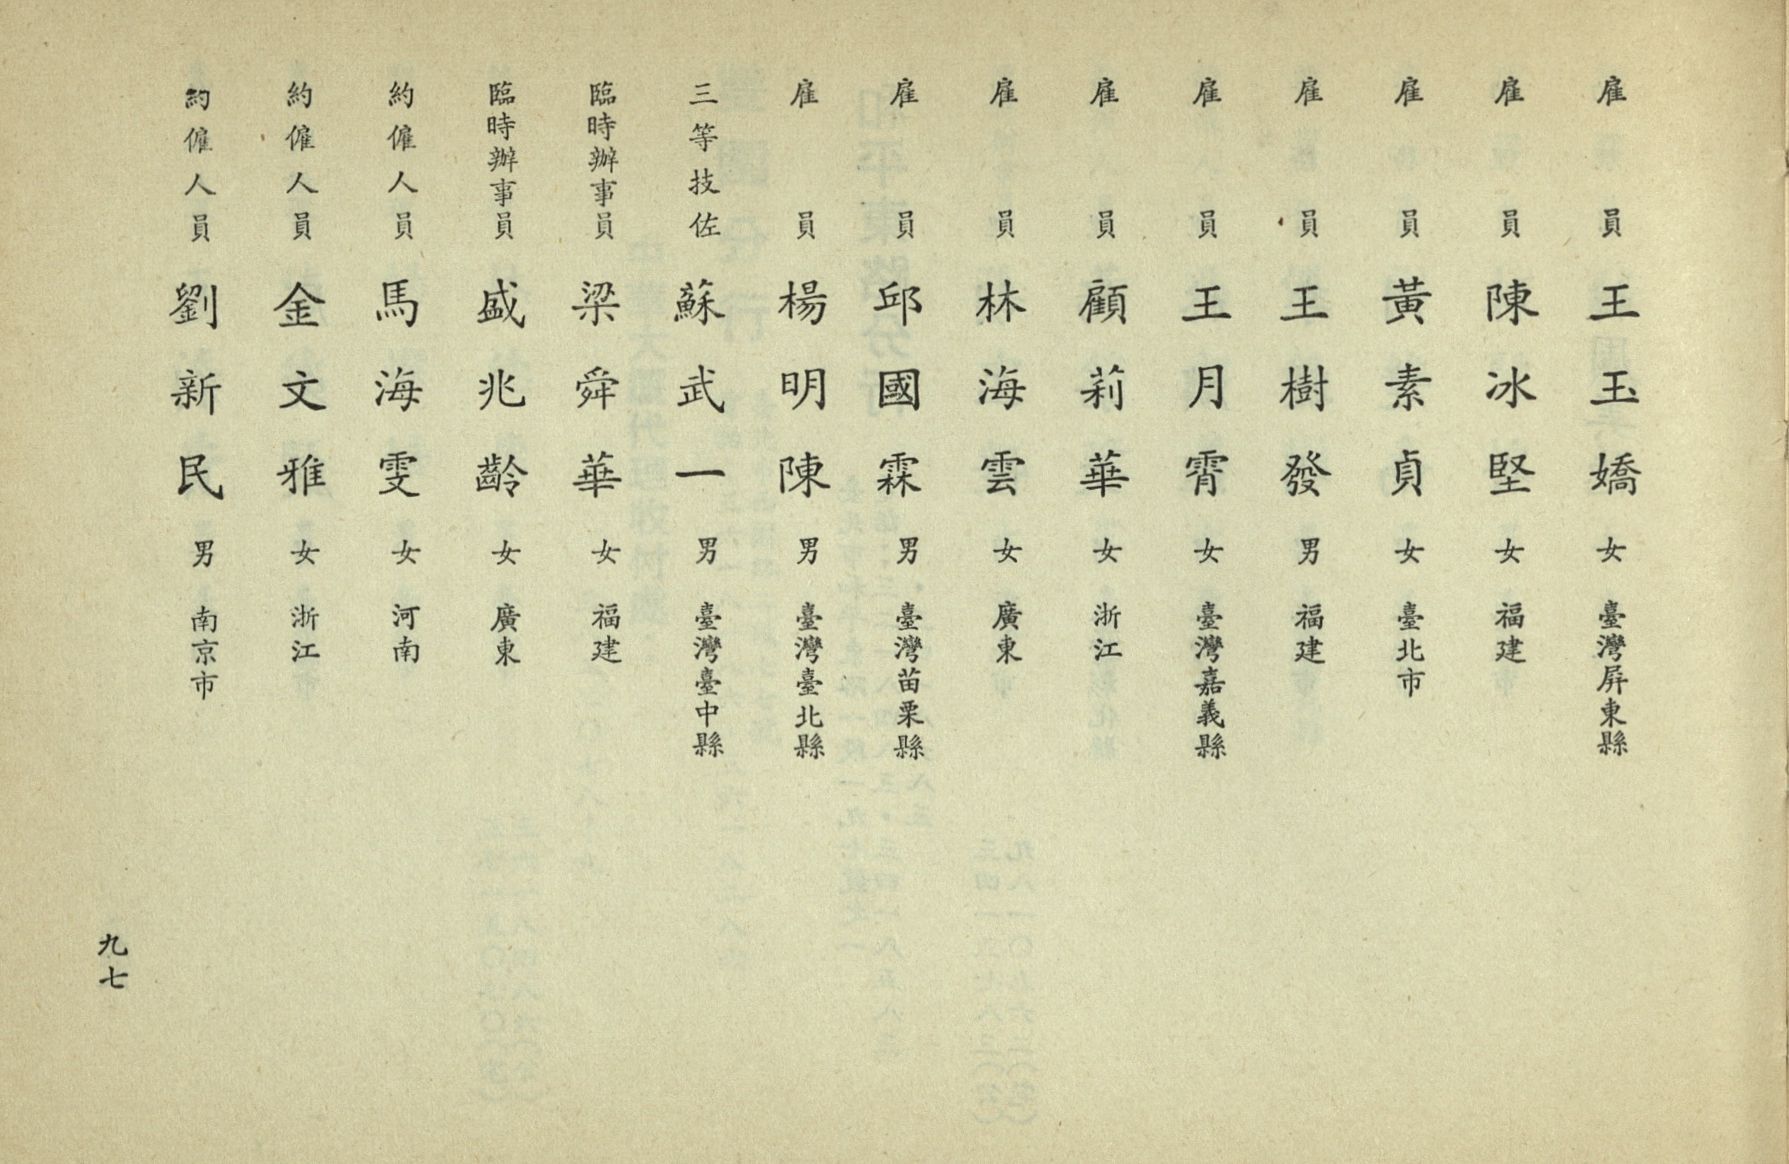 雇員 王玉嬌 女 臺灣屏東縣
雇員 陳冰堅 女 福建
雇員 黃素貞 女 臺北市
雇員 王樹發 男 福建
雇員 王月霄 女 臺灣嘉義縣
雇員 顧莉華 女 浙江
雇員 林海雲 女 廣東
雇員 邱國霖 男 臺灣苗栗縣
雇員 楊明陳 男 臺灣臺北縣
三等技佐 蘇武一 男 臺灣臺中縣
臨時辦事員 梁舜華 女 福建
臨時辦事員 盛兆齡 女 廣東
約僱人員 馬海雯 女 河南
約僱人員 金文雅 女 浙江
約僱人員 劉新民 男 南京市
九七